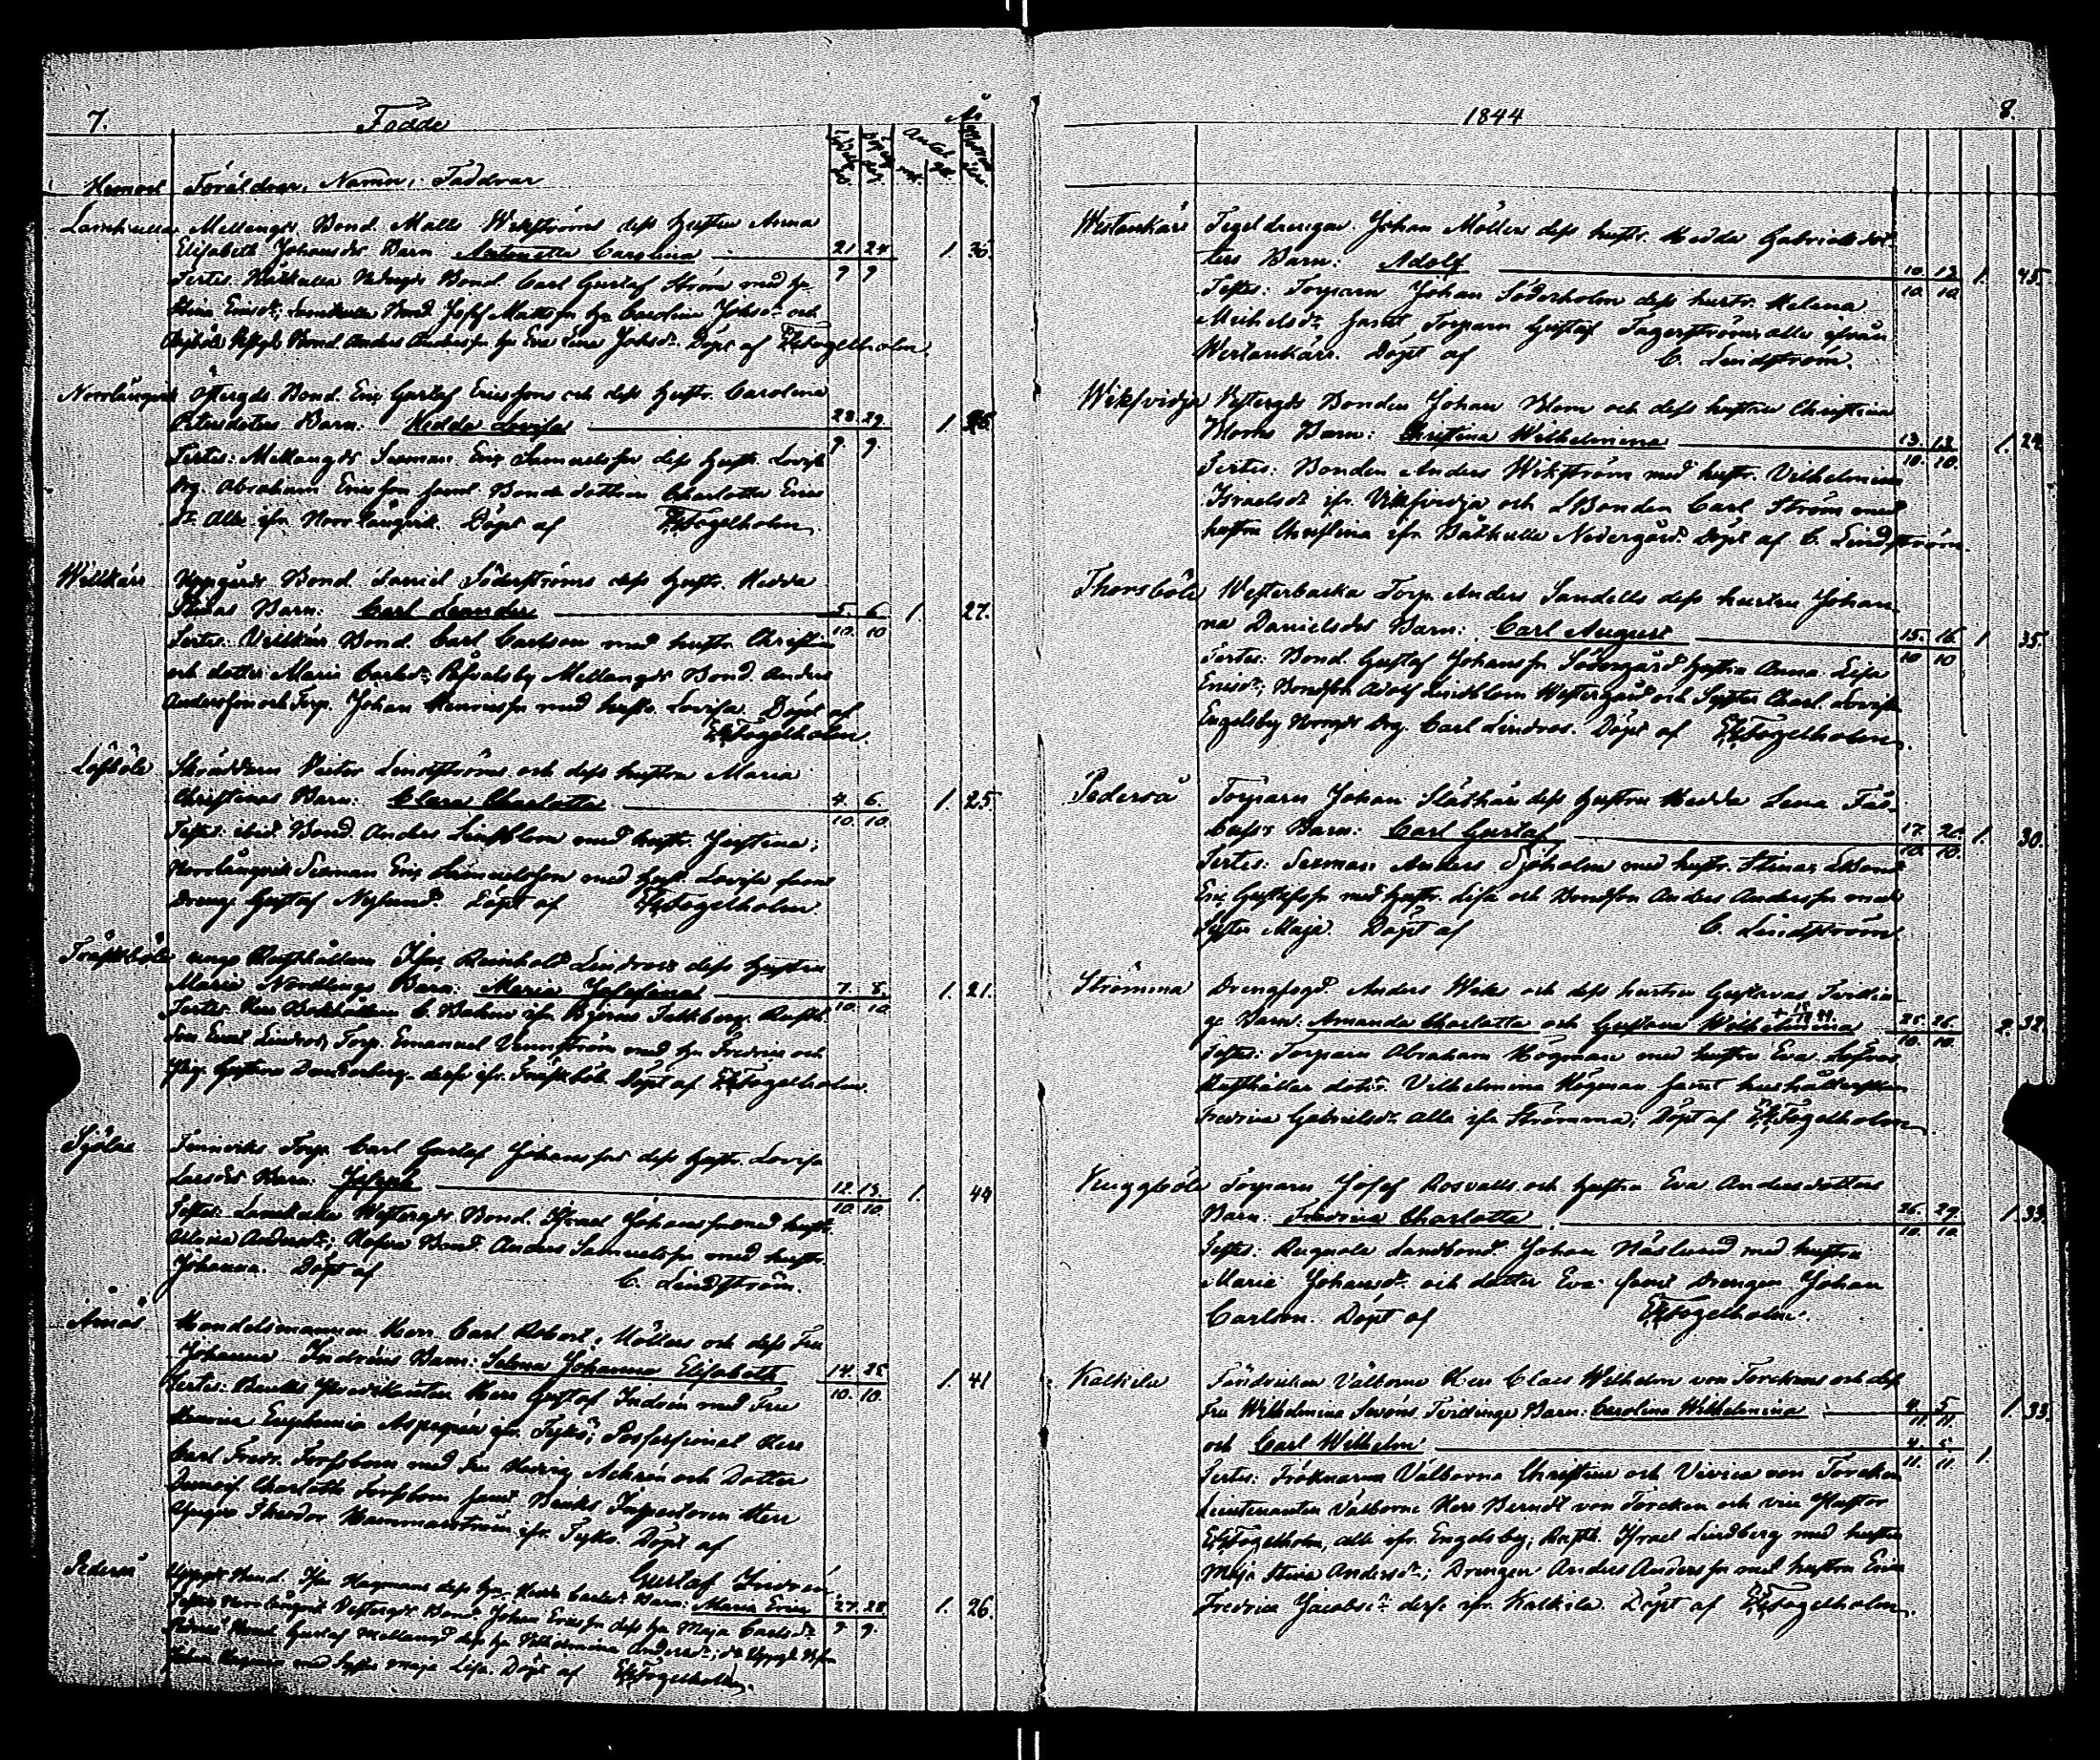 7. Födde År
Hemort Föräldrar, Namn, Faddrar
Mellangds Bond. Matts Wikströms dess hustru Anna
Elisabeth Johansdrs Barn Antonetta Carolina 21 24 1. 36
9 9
Testes: Nedergds Bond. Carl Gustaf Ström med hu
Stina Ericsdr, Bond. Josef Mattsson hu Carolina Johsdr och
Bond. Anders Andersson hu Eva Lena Johsdr. Döpt af Fogelholm.
Norrlångvik Östergds Bond. Eric Gustaf Ericssons och dess hustr. Carolina
Petersdotters Barn: Hedda Lovisa 28. 29. 1.
9 9
Testes: Mellangds Sexman Eric Samuelsson dess hustr. Lovisa
Drg. Abraham Ericsson samt Bonde dottren Charlotta Erics
dr Alla ifr. Norrlångvik. Döpt af Fogelholm.
Willkärr Uppgårds Bond. Daniel Söderströms dess hustr. Hedda
Stinas Barn: Carl Leander 5. 6. 1. 27.
10. 10
Testes: Willkärr Bond. Carl Carlsson med hustr. Christina
och dotter Maria Carlsdr, Mellangds Bond. Anders
Andersson och Torp. Johan Henricsson med hustr. Lovisa. Döpt af
Fogelholm.
Löfböle Skräddarn Victor Lindströms och dess hustru Maria
Christinas Barn: Clara Charlotta 4. 6. 1. 25
10. 10.
Testes: ibid. Bond. Anders Lindblom med hustr. Justina,
Norrlångvik Sexman Eric Samuelsson med hust. Lovisa samt
Dreng. Gustaf Nylund. Döpt af Fogelholm.
Träskböle unge Rusthållarn Isac Reinhold Lindroos dess hustru
Maria Nordlings Barn: Maria Josefina 7. 8. 1. 21.
10. 10
Testes: Herr Bokhållaren C. ifr. Björns
Son Emil Lindros, Torp. Emanuel Vennström med hu Fredrica och
Pig. Gustava dersse ifr. Träskböle. Döpt af Fogelholm.
Sjölax Torp. Carl Gustaf Johanssons dess hustr. Lovisa
Larsdrs Barn: Joseph 12. 13. 1. 44
10. 10.
Testes: Westergds Bond. Israel Johansson med hustr.
Andersdr; Bond. Anders Samuelsson med hustr.
Johanna. Döpt af C. Lindström.
Åminö Handelsmannen Herr Carl Robert Möllers och dess Fru
Johanna Indréns Barn: Selma Johanna Elisabeth 14. 25. 1. 41
10. 10.
Testes: Bruks Predikanten Herr Gustaf Indrén med Fru
Henrica Euphemia Aspegrén ifr. Tykö; Possessionat Herr
Carl Fredr. Forssbom med Fru Hedvig och Dotter
Charlotte Forssbom samt Bruks Inspectoren Herr
Theodor Hammarström ifr. Tykö. Döpt af
Gustaf Indrén.
Pederså Uppgds Bond. Isac Hagmans dess hu Hedda Carlsdr Barn: Maria Erica 27. 28. 1. 26.
9. 9.
Testes: Norrlångvik Westergds Bond. Johan Ericsson dess hu Maja Carlsdr
Pederså Bond. Gustaf dess hu Wilhelmina Andersdr;
Johan Hagman med Syster Maja Lisa. Döpt af Fogelholm.
1844 8.
Westankärr Tegeldrengen Johan Möllers dess hustr. Hedda Gabrielsdot
ters Barn: Adolf 10. 12. 1. 45.
10. 10.
Testes: Torparn Johan Söderholm dess hustr. Helena
Michelsdr, samt Torparn Gustaf Fagerströms alla ifrån
Westankärr. Döpt af C. Lindström.
Wiksvidja Westergds Bonden Johan Blom och dess hustru Christina
Bloms Barn: Christina Wilhelmina 13. 13. 1. 24
10. 10.
Testes: Bonden Anders Wikström med hustr. Vilhelmina
Israelsdr ifr. Viksvidja och LBonden Carl Ström med
hustru Christina ifr. Båtkulla Nedergård. Döpt af C. Lindström.
Thorsböle Westerbacka Torp. Anders Sandells dess hustru Johan
na Danielsdrs Barn: Carl August 15. 16. 1 35.
10 10
Testes: Bond. Gustaf Johansson Södergård hustru Anna Lisa
Ericsdr; Bondson Adolf Lindblom Westergård och Syster Charl. Lovisa
Engelsby Norrgds Drg. Carl Lindros. Döpt af Fogelholm.
Pederså Torparn Johan Slåthårs dess hustru Hedda Lena
Barn: Carl Gustaf 17. 20. 1. 30.
10. 10.
Testes: Sexman Anders Sjöholm med hustr. Stina; LBond
Eric Gustafsson med hustr. Lisa och Bondson Anders Andersson med
Syster Maja. Döpt af C. Lindström.
Strömma Drengfogd. Anders Wiks och dess hustru Gustavas Tvillin
gs Barn: Amanda Charlotta och Gustava Wilhelmina 25. 26. 2. 32.
10. 10.
Testes: Torparn Abraham Högman med hustru Eva
Rusthållar dotr. Vilhelmina Högman samt hushållerskan
Fredrica Gabrielsdr alla ifr Strömma; Döpt af Fogelholm.
Vuggböle Torparn Josef Rosvalls och hustru Eva Andersdotters
Barn: Fredrica Charlotta 26. 29. 1. 33.
10. 10.
Testes: Rugnola Landbond. Johan Näslund med hustru
Maria Johansdr och dotter Eva samt Drengen Johan
Carlson. Döpt af Fogelholm.
Kalkila Fändricken Välborne Herr Claes Wilhelm von Torckens och dess
Fru Wilhelmina Tvillinge Barn: Carolina Wilhelmina 4. 5. 1. 33.
11. 11.
och Carl Wilhelm 4. 5. 1
11. 11.
Testes: Fröknarna Välborna Christine och Vivica von Torcken
Lieutenanten Välborne Herr Berndt von Torcken och vice Pastor
Fogelholm, alla ifr. Engelsby; Rusth. Israel Lindberg med hustru
Maja Stina Andersdr; Drengen Anders Andersson med hustru Eva
Fredrica Jacobsdr dersse ifr. Kalkila. Döpt af Fogelholm.